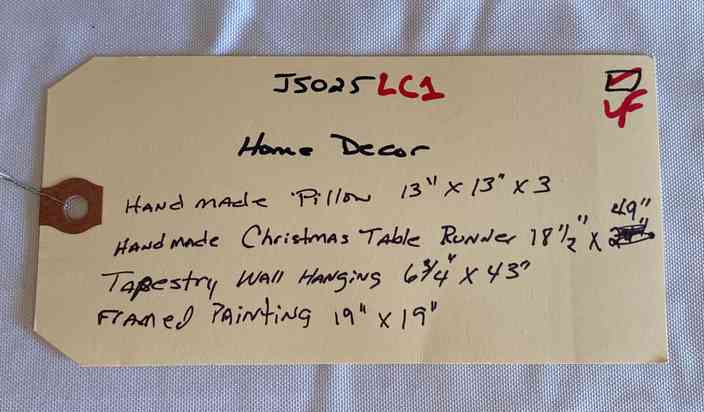 J5025LC1
LF
Home Decor
Handmade Pillow 13" x 13" x 3
Handmade Christmas Table Runner 18 1/2" x 49"
Tapestry Wall Hanging 6 3/4" x 43"
Framed Painting 19" x 19"